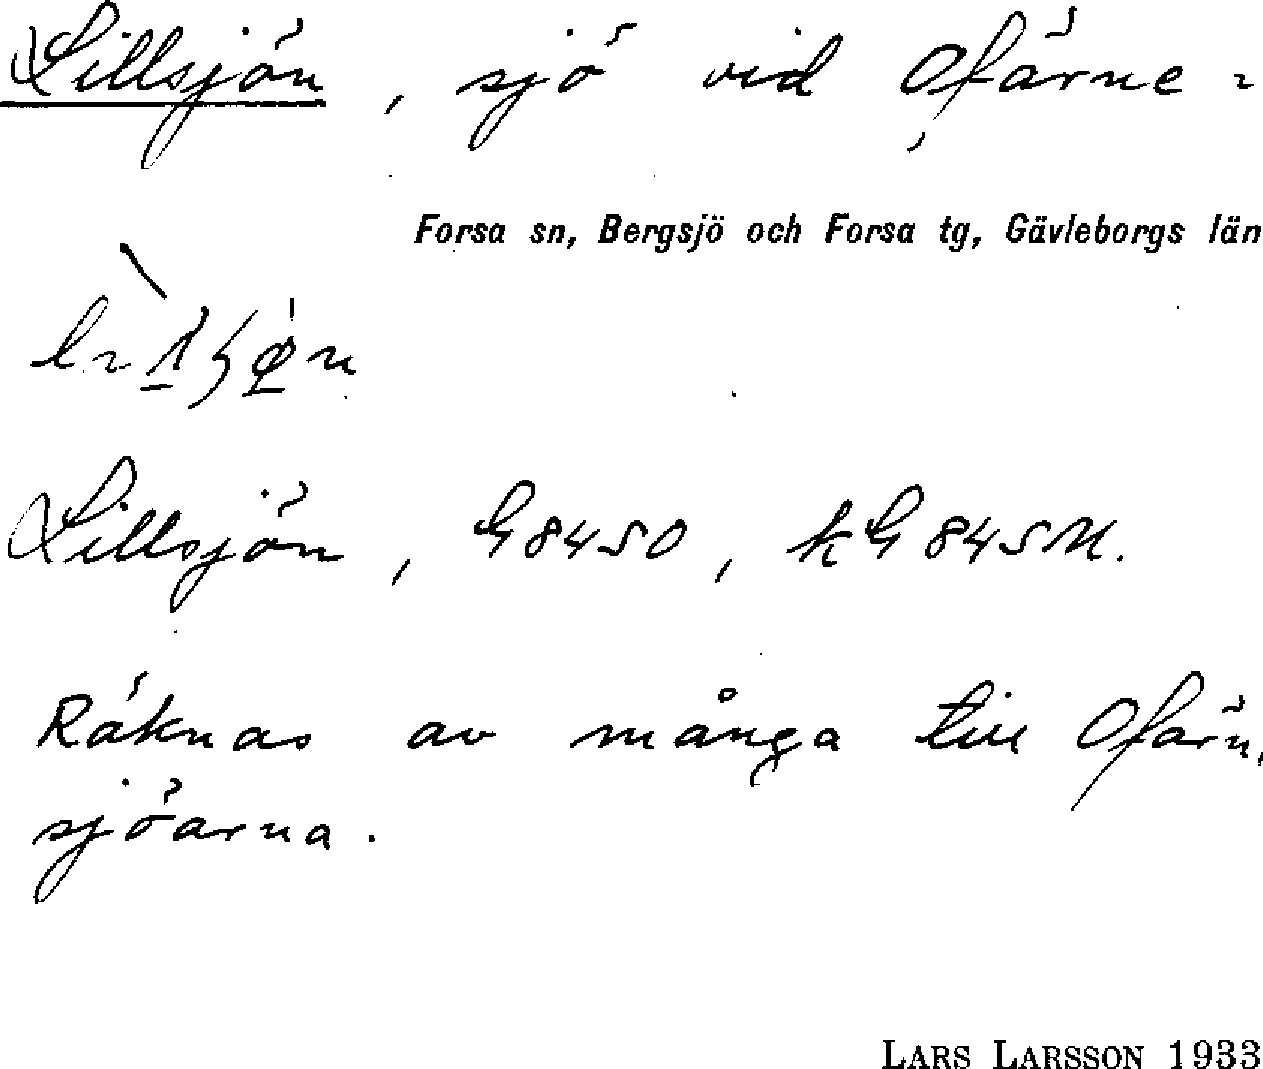 Lillsjön, sjö vid Ofärne.
Forsa sn, Bergsjö och Forsa tg, Gävleborgs län
Lillsjön, G 8450, kG 845M.
Räknas av många till Ofärn,
sjöarna.
LARS LARSSON 1933